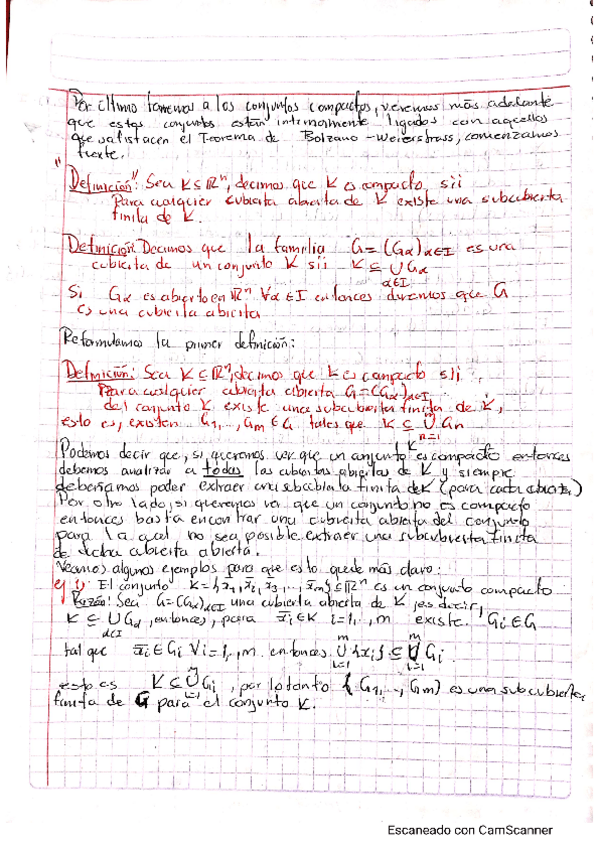 Por último tenemos a los conjuntos compactos, veremos más adelante
que estos conjuntos están íntimamente ligados con aquellos
que satisfacen el Teorema de Bolzano-Weierstrass, comenzamos
fuerte.
"Definición": Sea K⊆ℝⁿ, decimos que K es compacto sii
Para cualquier cubierta abierta de K existe una subcubierta
finita de K.
Definición: Decimos que la familia G=(Gα)α∈I es una
cubierta de un conjunto K sii K⊆∪Gα
α∈I
Si Gα es abierto en ℝⁿ ∀α∈I entonces diremos que G
es una cubierta abierta
Reformulamos la primer definición:
Definición: Sea K⊆ℝⁿ, decimos que K es compacto sii
Para cualquier cubierta abierta G=(Gα)α∈I
del conjunto K existe una subcubierta finita de K,
esto es, existen G1,..,Gm∈G tales que K⊆∪Gn
n=1
Podemos decir que, si queremos ver que un conjunto K es compacto entonces
debemos analizar a todas las cubiertas abiertas de K y siempre
deberíamos poder extraer una subcubierta finita de K (para cada abierta)
Por otro lado, si queremos ver que un conjunto no es compacto
entonces basta encontrar una cubierta abierta del conjunto
para la cual no sea posible extraer una subcubierta finita
de dicha cubierta abierta.
Veamos algunos ejemplos para que esto quede más claro:
ej 1) El conjunto K={x̄1, x̄2, x̄3, ..., x̄m}⊆ℝⁿ es un conjunto compacto
Razón: Sea G=(Gα)α∈I una cubierta abierta de K, es decir,
K⊆∪Gα, entonces, para x̄i∈K i=1,..,m existe Gi∈G
α∈I
tal que x̄i∈Gi ∀i=1,..,m entonces ∪{xi}⊆∪Gi
esto es K⊆∪Gi, por lo tanto {G1,..,Gm} es una subcubierta
finita de G para el conjunto K.
Escaneado con CamScanner